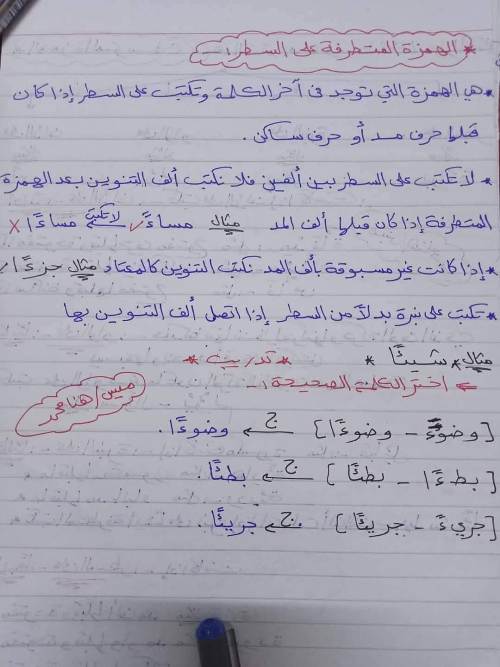 * الهمزة المتطرفة على السطر :-
* هي الهمزة التي توجد في آخر الكلمة وتكتب على السطر إذا كان
قبلها حرف مد أو حرف ساكن .
* لا تكتب على السطر بين ألفين فلا نكتب ألف التنوين بعد الهمزة
المتطرفة إذا كان قبلها ألف المد مثال مساءً ✓ لا تكتب مساءًا ✗
* إذا كانت غير مسبوقة بألف المد نكتب التنوين كالمعتاد مثال جزءًا ✓
* تكتب على نبرة بدلًا من السطر إذا اتصل ألف التنوين بها
مثال * شيئًا * * تدريب *
← اختر الكلمة الصحيحة :-
ميس / هنا محمد
[وضوءً - وضوءًا] ج ← وضوءًا .
[بطءًا - بطئًا] ج ← بطئًا .
[جريءً - جريئًا] ج ← جريئًا .